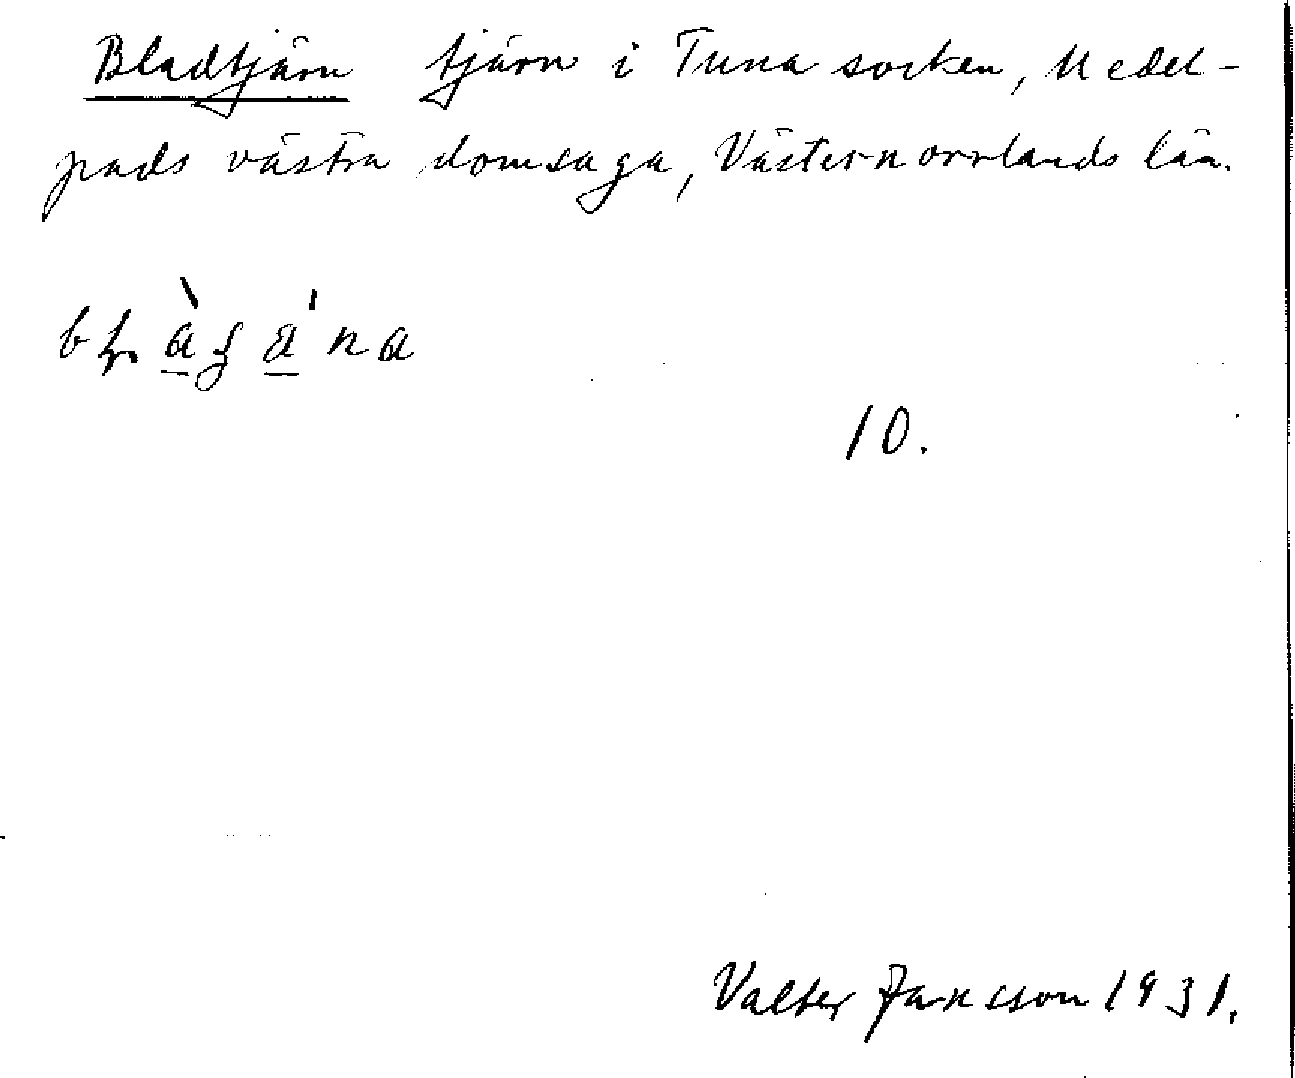 Bladtjärn tjärn i Tuna socken, Medel-
pads västra domsaga, Västernorrlands län.
10.
Valter Jansson 1931.